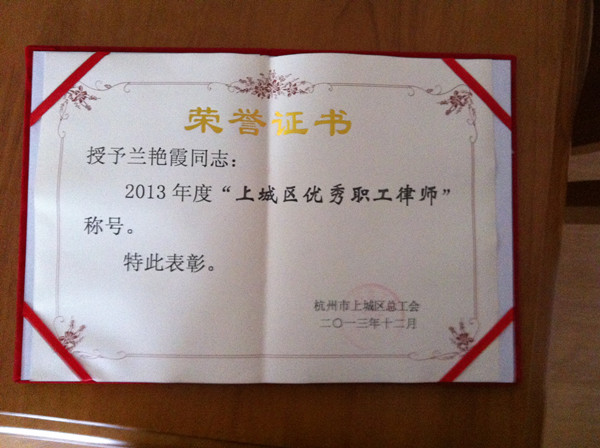 荣誉证书
授予兰艳霞同志：
2013年度“上城区优秀职工律师”
称号。
特此表彰。
杭州市上城区总工会
二〇一三年十二月